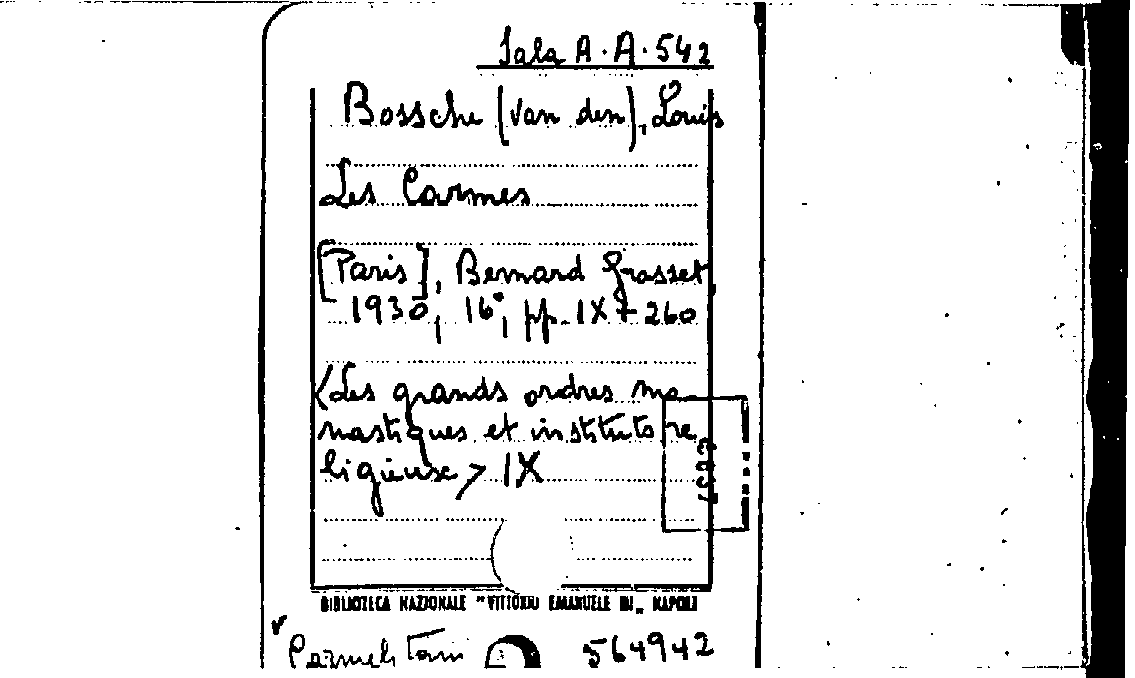 Sala A. A. 542
Bossche (van den), Louis
Les Carmes
[Paris], Bernard Grasset,
1930, 16°, pp. IX + 260
(Les grands ordres mo
nastiques et instituts re
ligieuse) IX
BIBLIOTECA NAZIONALE "VITTORIO EMANUELE III" NAPOLI
Carmelitani 564942